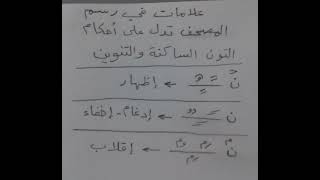 علامات في رسم
المصحف تدل على أحكام
النون الساكنة والتنوين
نْ ــًــٌــٍ ← إظهار
ن ← إدغام - إخفاء
نۢ ← إقلاب